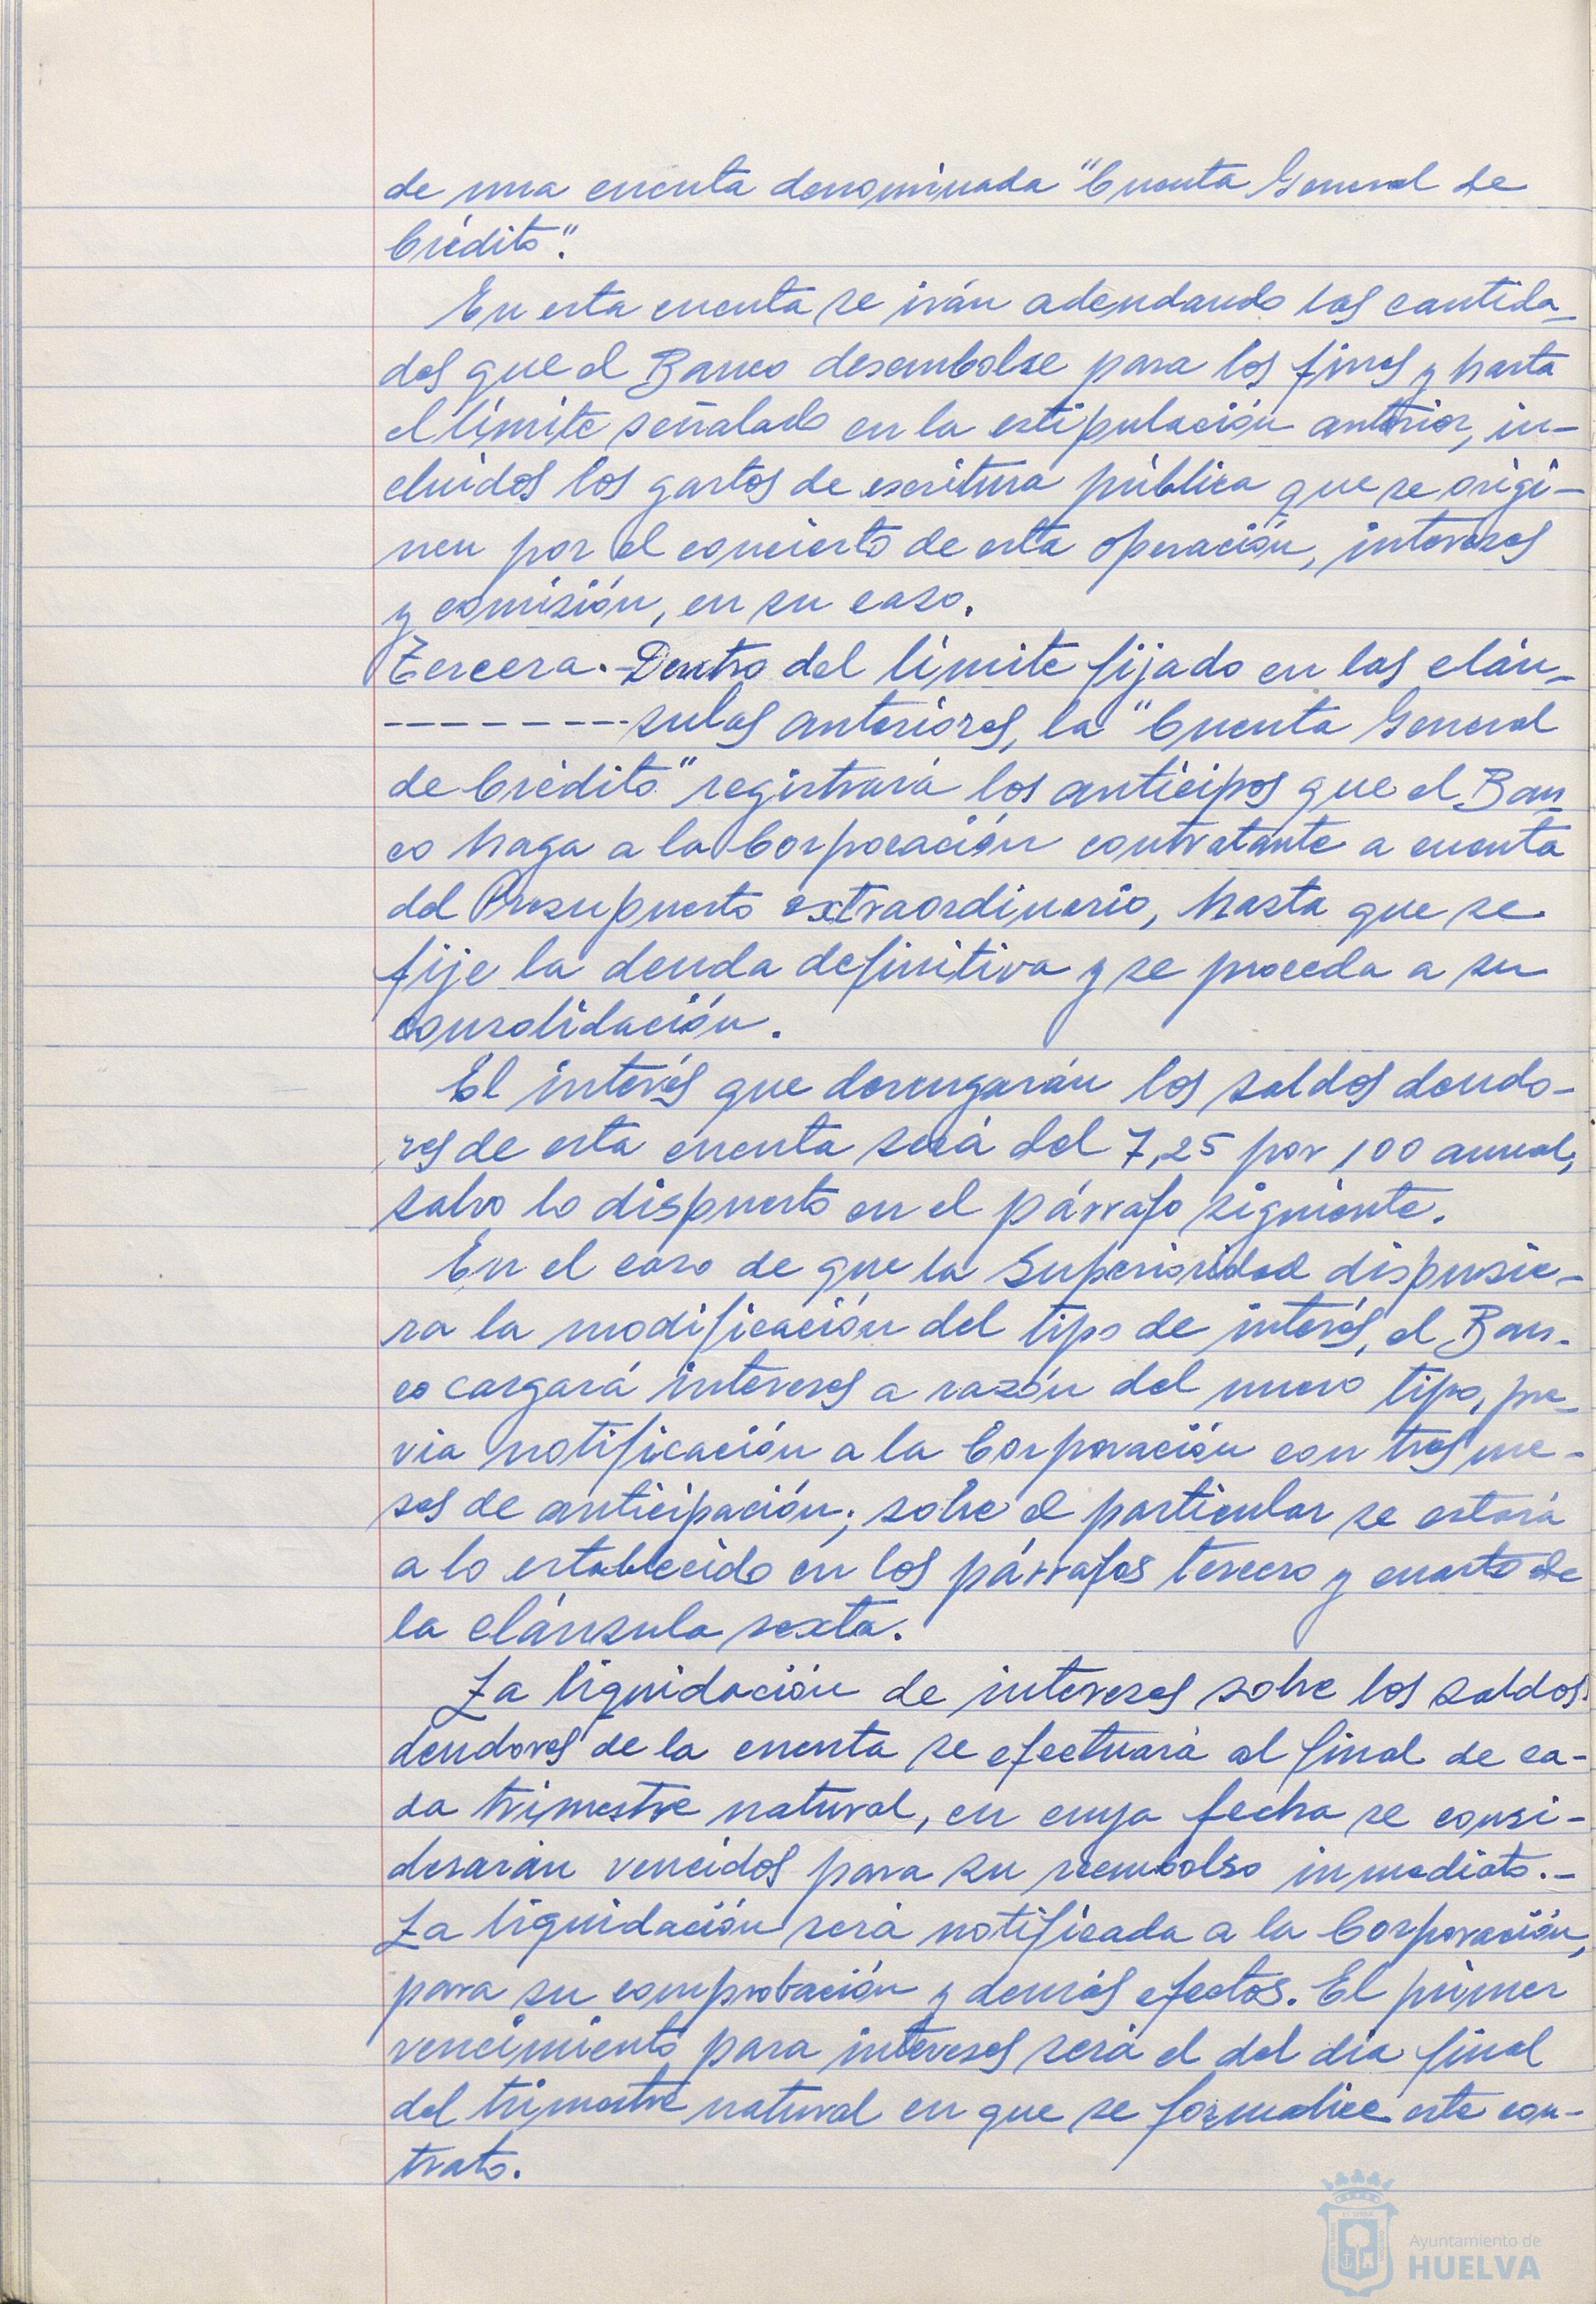 de una cuenta denominada "Cuenta General de
Crédito".
En esta cuenta se irán adeudando las cantida-
des que el Banco desembolse para los fines y hasta
el límite señalado en la estipulación anterior, in-
cluidos los gastos de escritura pública que se origi-
nen por el concierto de esta operación, intereses
y comisión, en su caso.
Tercera.- Dentro del límite fijado en las cláu-
--------- sulas anteriores, la "Cuenta General
de Crédito" registrará los anticipos que el Ban-
co haga a la Corporación contratante a cuenta
del Presupuesto extraordinario, hasta que se
fije la deuda definitiva y se proceda a su
consolidación.
El interés que devengarán los saldos deudo-
res de esta cuenta será del 7,25 por 100 anual,
salvo lo dispuesto en el párrafo siguiente.
En el caso de que la Superioridad dispusie-
ra la modificación del tipo de interés, el Ban-
co cargará intereses a razón del nuevo tipo, pre-
via notificación a la Corporación con tres me-
ses de anticipación; sobre el particular se estará
a lo establecido en los párrafos tercero y cuarto de
la cláusula sexta.
La liquidación de intereses sobre los saldos
deudores de la cuenta se efectuará al final de ca-
da trimestre natural, en cuya fecha se consi-
derarán vencidos para su reembolso inmediato.-
La liquidación será notificada a la Corporación,
para su comprobación y demás efectos. El primer
vencimiento para intereses será el del día final
del trimestre natural en que se formalice este con-
trato.
Ayuntamiento de
HUELVA